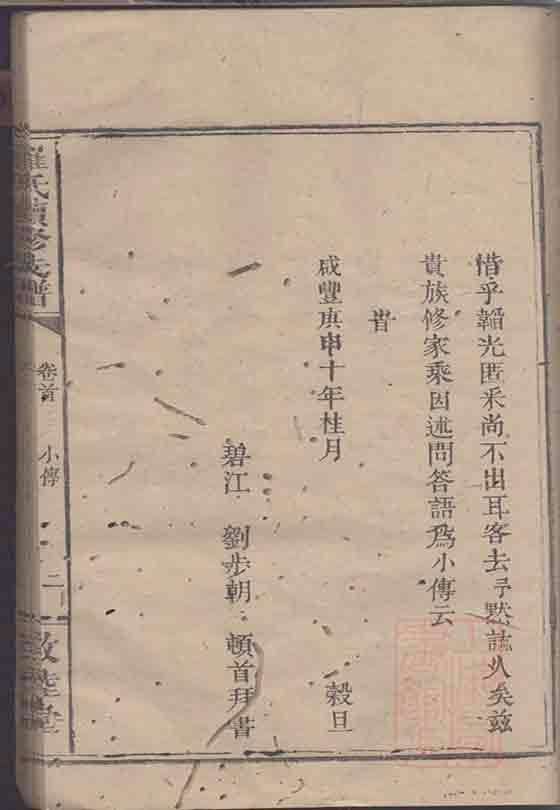 惜乎韜光匿采尚不出耳客去予默誌久矣茲
貴族修家乘因述問答語爲小傳云
旹
咸豐庚申十年桂月 穀旦
碧江 劉步朝 頓首拜書
羅氏續修族譜 卷首 小傳 二 敦睦堂